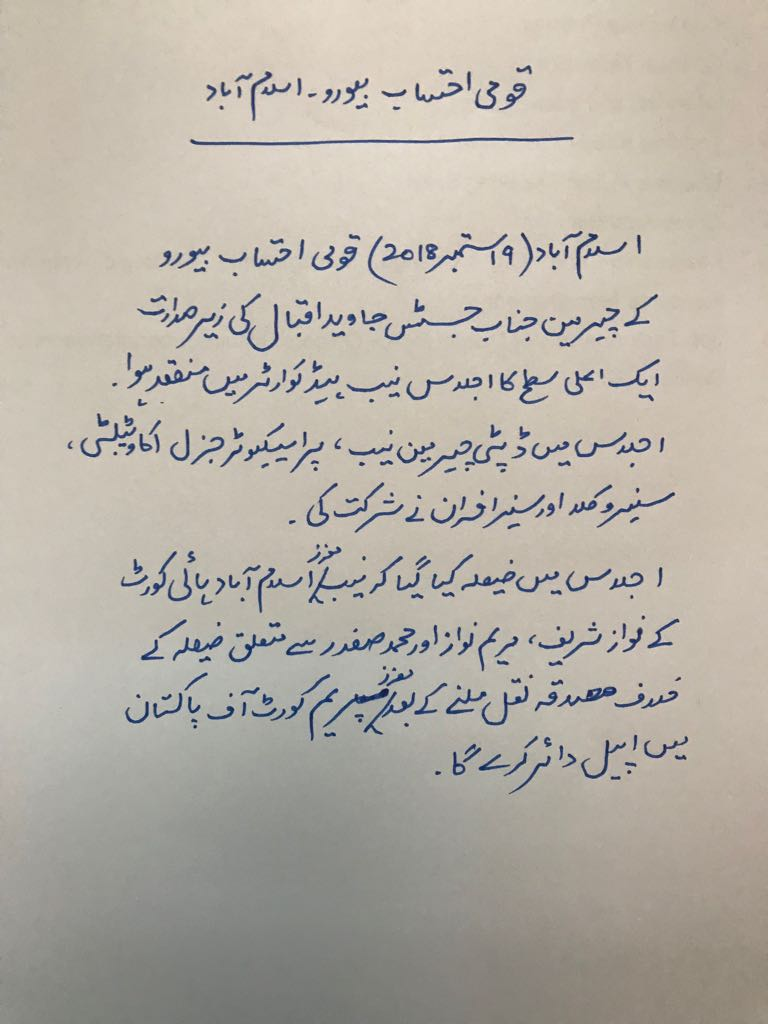 قومی احتساب بیورو۔ اسلام آباد
اسلام آباد (19 ستمبر 2018) قومی احتساب بیورو
کے چیرمین جناب جسٹس جاوید اقبال کی زیر صدارت
ایک اعلی سطح کا اجلاس نیب ہیڈ کوارٹر میں منعقد ہوا۔
اجلاس میں ڈپٹی چیرمین نیب، پراسیکیوٹر جنرل اکاونٹیبلٹی،
سنیر وکلاء اور سنیر افسران نے شرکت کی۔
اجلاس میں فیصلہ کیا گیا کہ نیب معزز اسلام آباد ہائی کورٹ
کے نواز شریف، مریم نواز اور محمد صفدر سے متعلق فیصلہ کے
خلاف مصدقہ نقل ملنے کے بعد معزز سپریم کورٹ آف پاکستان
میں اپیل دائر کرے گا۔